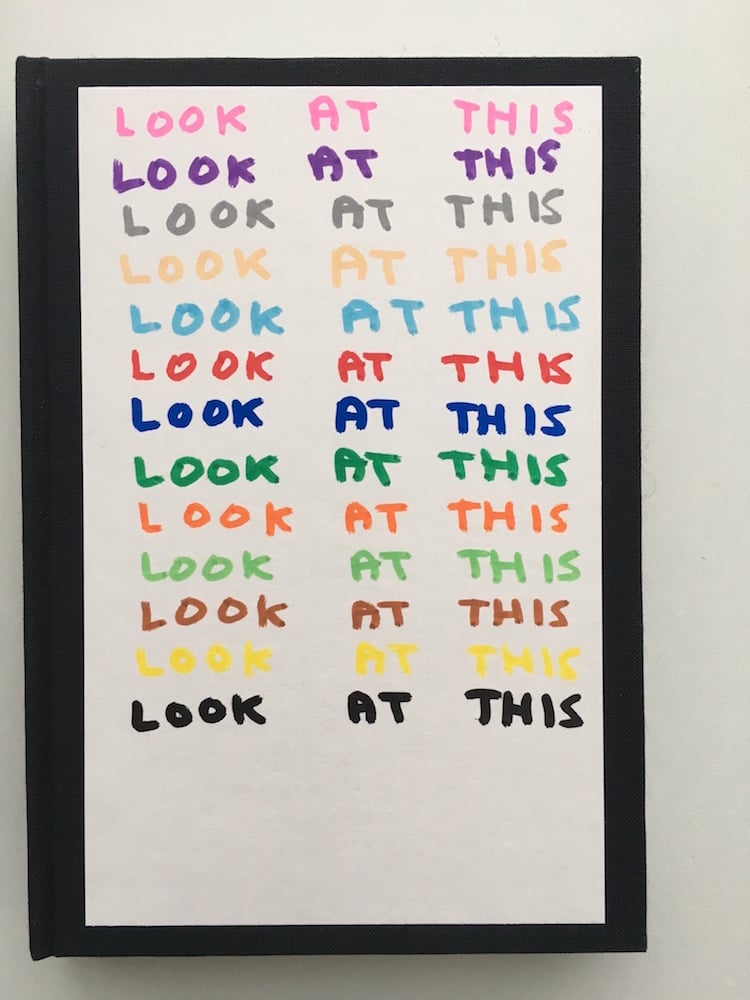 LOOK AT THIS
LOOK AT THIS
LOOK AT THIS
LOOK AT THIS
LOOK AT THIS
LOOK AT THIS
LOOK AT THIS
LOOK AT THIS
LOOK AT THIS
LOOK AT THIS
LOOK AT THIS
LOOK AT THIS
LOOK AT THIS